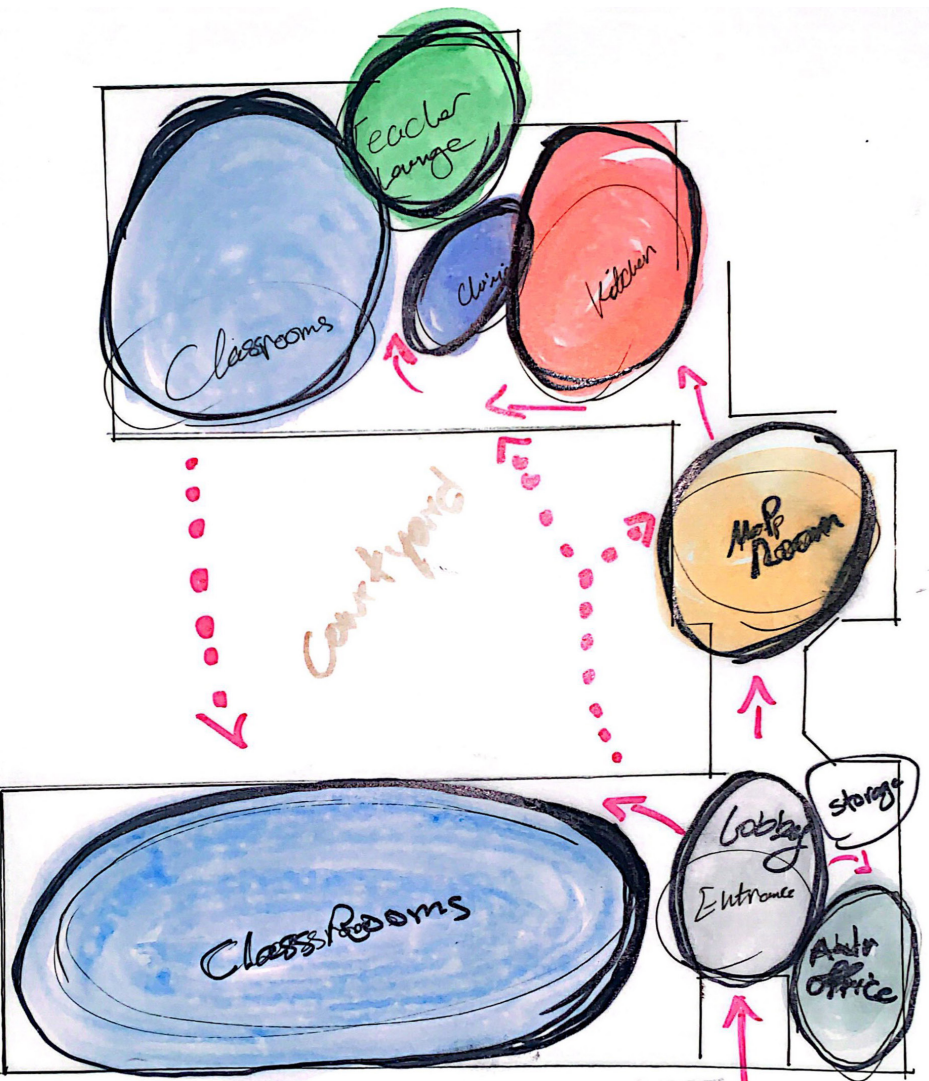 Teacher
Lounge
Clinic
Kitchen
Classrooms
Courtyard
Room
storage
Lobby
Entrance
Classrooms
office